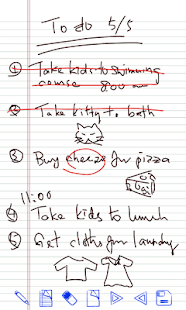 To do 5/5
① Take kids to swimming
course 800
② Take kitty to bath
③ Buy cheeze for pizza
11:00
④ Take kids to lunch
⑤ Get cloths from laundry